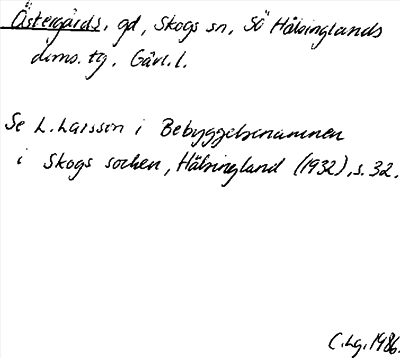 Östergårds, gd, Skogs sn, Sö Hälsinglands
doms. tg. Gävl. l.
Se L. Larsson i Bebyggelsenamnen
i Skogs socken, Hälsingland (1932), s. 32.
C. Lg. 1986.